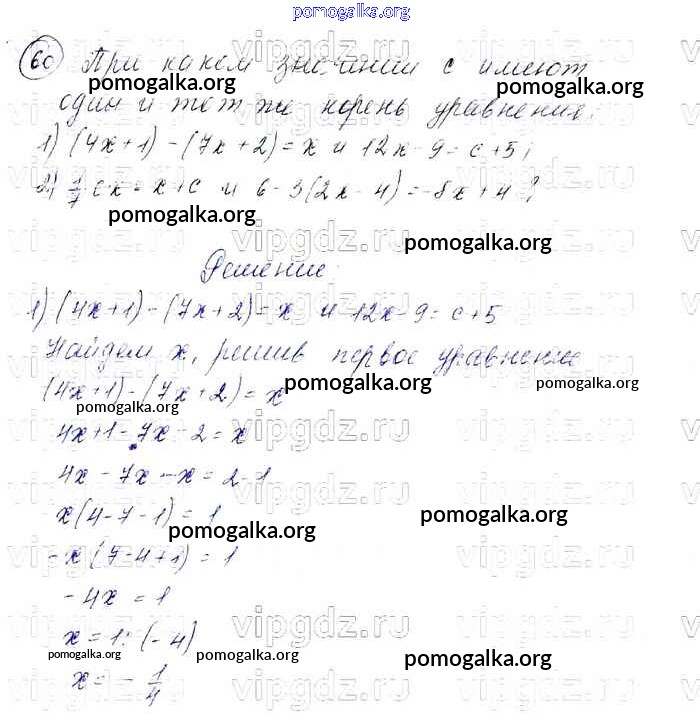 pomogalka.org
60 При каком значении c имеют
один и тот же корень уравнения:
1) (4x+1)-(7x+2)=x и 12x-9=c+5;
2) 1/7 cx=x+c и 6-3(2x-4)=-8x+4?
pomogalka.org pomogalka.org
pomogalka.org pomogalka.org
Решение:
1) (4x+1)-(7x+2)=x и 12x-9=c+5
Найдем x, решив первое уравнение
(4x+1)-(7x+2)=x
pomogalka.org pomogalka.org
pomogalka.org
4x+1-7x-2=x
4x-7x-x=2-1
x(4-7-1)=1
pomogalka.org pomogalka.org
-x(7-4+1)=1
-4x=1
x=1:(-4)
pomogalka.org pomogalka.org pomogalka.org
x=-1/4
vipgdz.ru